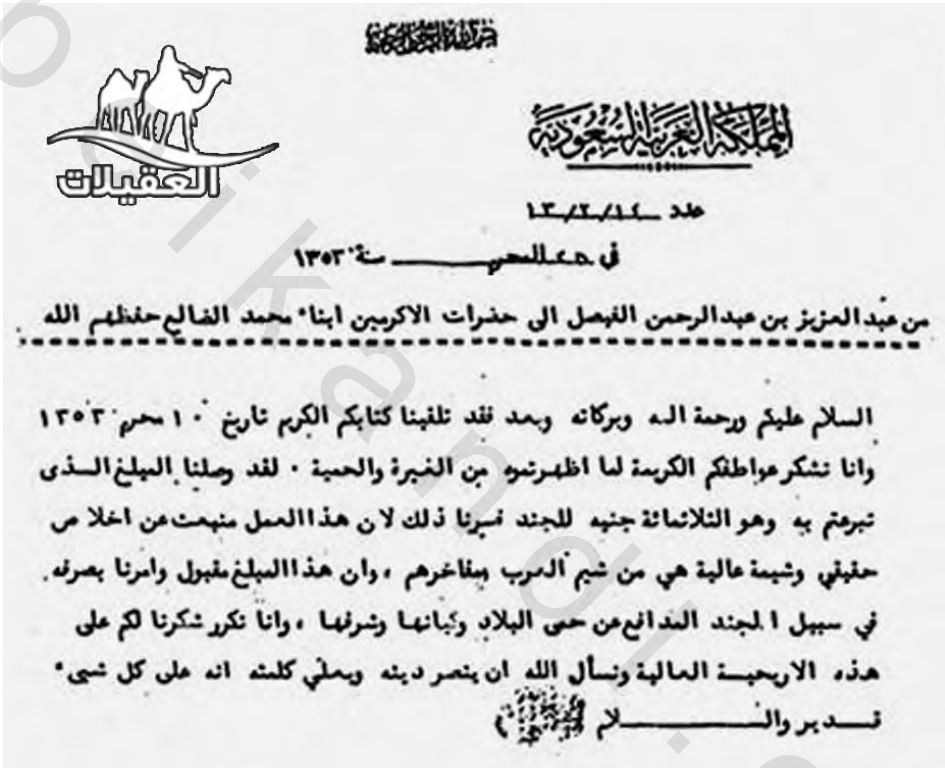 بسم الله الرحمن الرحيم
العقيلات
المملكة العربية السعودية
عدد ١٣/٢/١٤
في ٢٥ المحرم سنة ١٣٥٣
من عبد العزيز بن عبد الرحمن الفيصل الى حضرات الاكرمين ابناء محمد الضالع حفظهم الله
السلام عليكم ورحمة الله وبركاته وبعد فقد تلقينا كتابكم الكريم تاريخ ١٠ محرم ١٣٥٣
وانا نشكر عواطفكم الكريمة لما اظهرتموه من الغيرة والحمية ٠ لقد وصلنا المبلغ الــذى
تبرعتم به وهو الثلاثمائة جنيه للجند فسرنا ذلك لان هذا العمل منبعث عن اخلاص
حقيقي وشيمة عالية هي من شيم العرب ومفاخرهم ، وان هذا المبلغ مقبول وامرنا بصرفه
في سبيل الجند المدافع عن حمى البلاد وكيانها وشرفها ، وانا نكرر شكرنا لكم على
هذه الاريحيــة العالية ونسأل الله ان ينصر دينه ويعلي كلمته انه على كل شيء
قــدير والســــــلام
bikandi